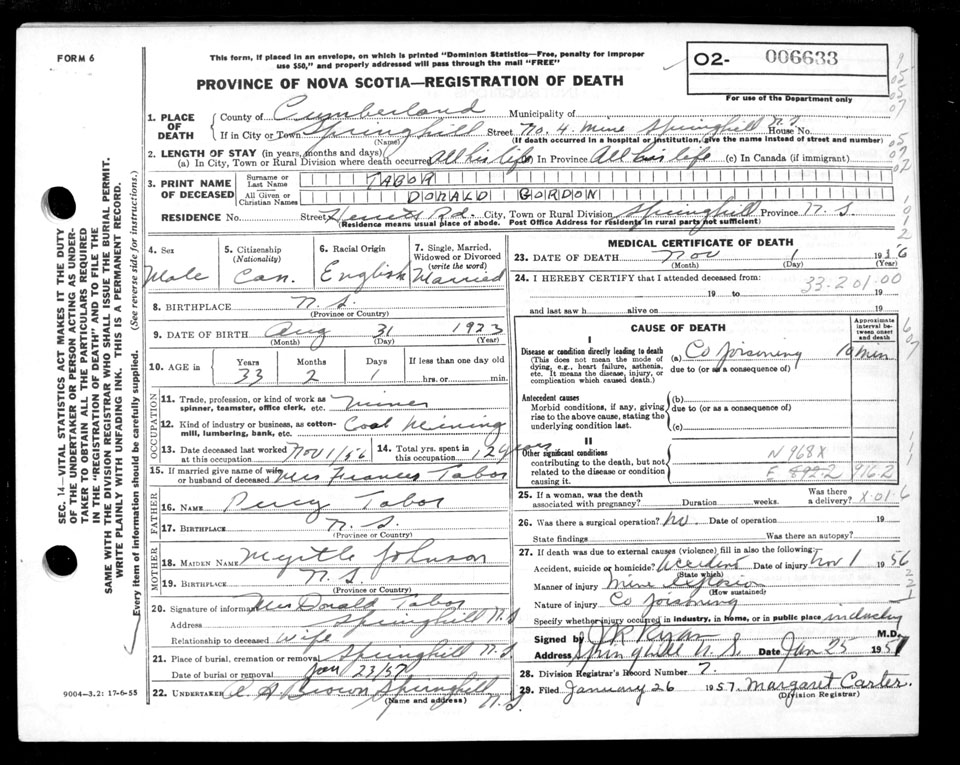 FORM 6
This form, if placed in an envelope, on which is printed "Dominion Statistics—Free, penalty for improper
use $50," and properly addressed will pass through the mail "FREE"
PROVINCE OF NOVA SCOTIA—REGISTRATION OF DEATH
02- 006633
For use of the Department only
SEC. 14—VITAL STATISTICS ACT MAKES IT THE DUTY
OF THE UNDERTAKER OR PERSON ACTING AS UNDER-
TAKER TO OBTAIN ALL THE PARTICULARS REQUIRED
IN THE "REGISTRATION OF DEATH" AND TO FILE THE
SAME WITH THE DIVISION REGISTRAR WHO SHALL ISSUE THE BURIAL PERMIT.
WRITE PLAINLY WITH UNFADING INK. THIS IS A PERMANENT RECORD.
Every item of information should be carefully supplied. (See reverse side for instructions.)
1. PLACE OF DEATH
County of Cumberland Municipality of
If in City or Town Springhill Street No. 4 Mine Springhill N.S. House No.
(Name) (If death occurred in a hospital or institution, give the name instead of street and number)
2. LENGTH OF STAY (in years, months and days)
(a) In City, Town or Rural Division where death occurred All his life (b) In Province All his life (c) In Canada (if immigrant)
3. PRINT NAME OF DECEASED
Surname or Last Name TABOR
All Given or Christian Names DONALD GORDON
RESIDENCE No. Street Herrets Rd. City, Town or Rural Division Springhill Province N.S.
(Residence means usual place of abode. Post Office Address for residents in rural parts not sufficient)
4. Sex Male
5. Citizenship (Nationality) Can.
6. Racial Origin English
7. Single, Married, Widowed or Divorced (write the word) Married
8. BIRTHPLACE N.S.
(Province or Country)
9. DATE OF BIRTH Aug 31 1923
(Month) (Day) (Year)
10. AGE in Years 33 Months 2 Days 1 If less than one day old
hrs. or min.
OCCUPATION
11. Trade, profession, or kind of work as
spinner, teamster, office clerk, etc. Miner
12. Kind of industry or business, as cotton-
mill, lumbering, bank, etc. Coal Mining
13. Date deceased last worked at this occupation Nov 1/56
14. Total yrs. spent in this occupation 12 years
15. If married give name of wife
or husband of deceased Mrs Frances Tabor
FATHER
16. NAME Percy Tabor
17. BIRTHPLACE N.S.
(Province or Country)
MOTHER
18. MAIDEN NAME Myrtle Johnson
19. BIRTHPLACE N.S.
(Province or Country)
20. Signature of informant Mrs Donald Tabor
Address Springhill N.S.
Relationship to deceased Wife
21. Place of burial, cremation or removal Springhill N.S.
Date of burial or removal Jan 23/57
22. UNDERTAKER A. A. Brown Springhill N.S.
(Name and address)
9004—3.2: 17-6-55
MEDICAL CERTIFICATE OF DEATH
23. DATE OF DEATH Nov 1 1956
(Month) (Day) (Year)
24. I HEREBY CERTIFY that I attended deceased from: 33-201-00
19 to 19
and last saw h alive on 19
CAUSE OF DEATH
Approximate interval between onset and death
I
Disease or condition directly leading to death
(This does not mean the mode of
dying, e.g., heart failure, asthenia,
etc. It means the disease, injury, or
complication which caused death.)
(a) Co Poisoning 10 min
due to (or as a consequence of)
Antecedent causes
Morbid conditions, if any, giving
rise to the above cause, stating the
underlying condition last.
(b)
due to (or as a consequence of)
(c)
II
Other significant conditions
contributing to the death, but not
related to the disease or condition
causing it.
N 968X
E 892.2 916.2
25. If a woman, was the death
associated with pregnancy? Duration weeks. Was there a delivery? X-01-6
26. Was there a surgical operation? No. Date of operation 19
State findings Was there an autopsy?
27. If death was due to external causes (violence) fill in also the following:
Accident, suicide or homicide? Accident Date of injury Nov 1 1956
(State which)
Manner of injury Mine Explosion
(How sustained)
Nature of injury Co Poisoning
Specify whether injury occurred in industry, in home, or in public place industry
Signed by J R Ryan M.D.
Address Springhill N.S. Date Jan 25 1957
28. Division Registrar's Record Number 7.
29. Filed January 26 1957. Margaret Carter.
(Division Registrar)